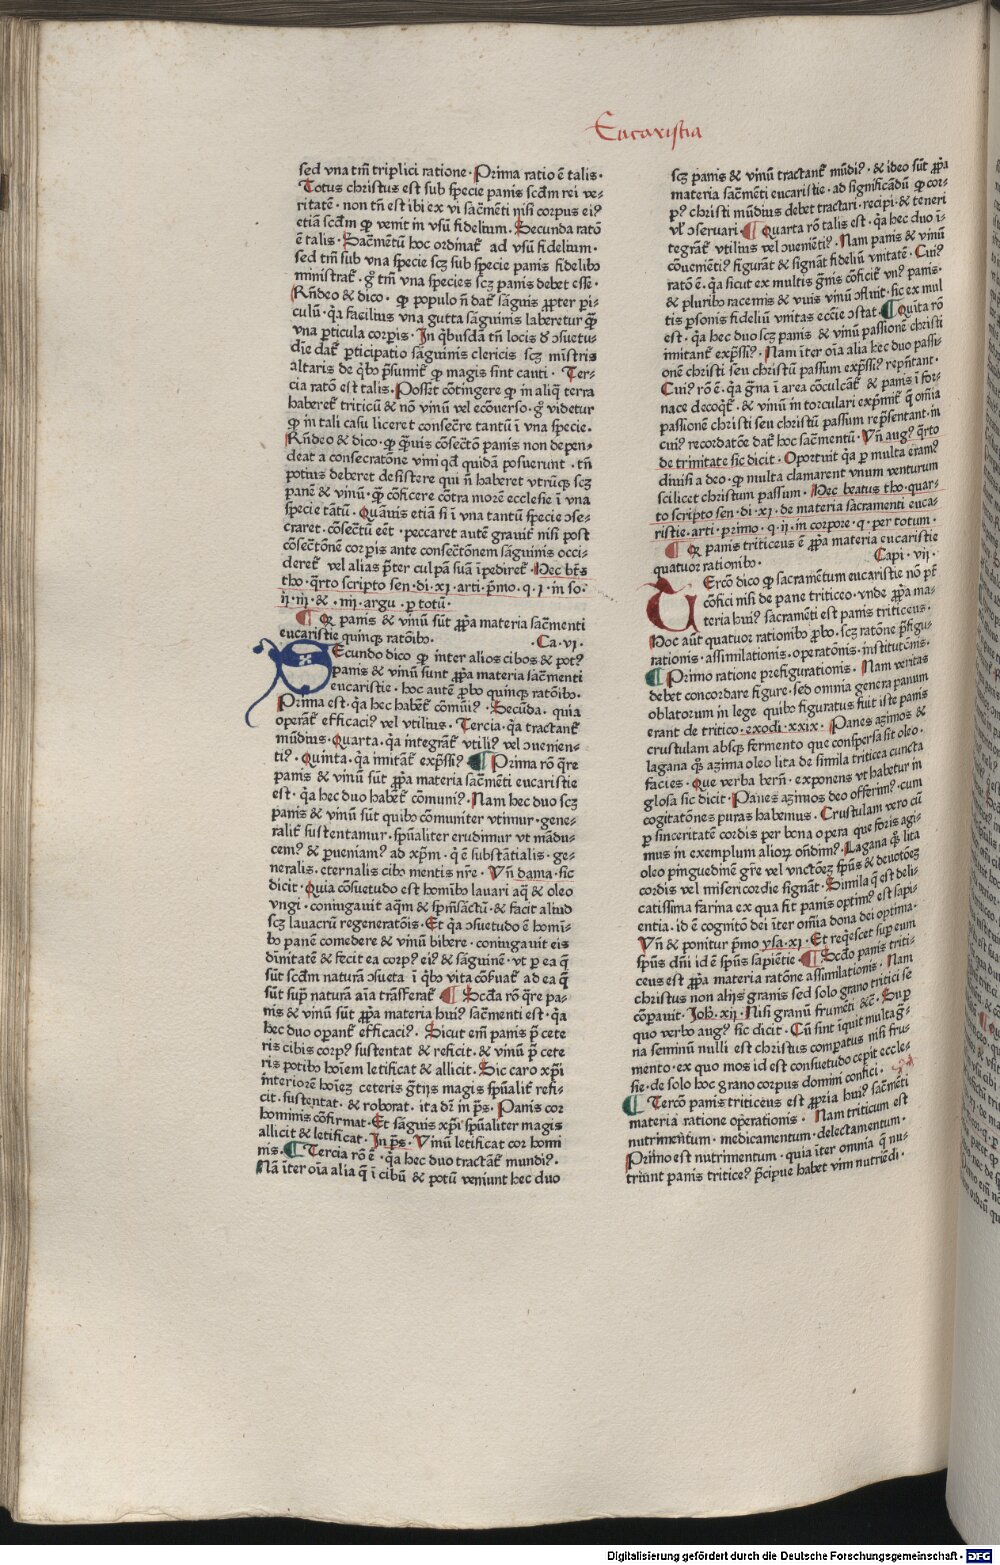 Eucaristia
sed vna tm̄ triplici ratione · Prima ratio ē talis ·
Totus christus est sub specie panis scd̄m rei ve⸗
ritatē · non tn̄ est ibi ex vi sacm̄enti nisi corpus ei⁹
etiā scd̄m ꝙ venit in vsū fidelium · Secunda ratō
ē talis · Sacm̄entū hoc ordinat᷑ ad vsū fidelium ·
sed tm̄ sub vna specie scꝫ sub specie panis fidelibꝰ
ministrat᷑ · g̊ tm̄ vna species scꝫ panis debet esse ·
Rn̄deo & dico · ꝙ populo n̄ dat᷑ sāguis ꝓpter pi⸗
culū · q̄a facilius vna gutta sāguinis laberetur q̄ꝫ
vna ꝑticula corpis · In q̄busdā tn̄ locis d̓ ↄsuetu⸗
dīe dat᷑ ꝑticipatio sāguinis clericis scꝫ mīstris
altaris de q̄bꝰ p̄sumit᷑ ꝙ magis sint cauti · Ter⸗
cia ratō est talis · Posset cōtingere ꝙ in aliq̄ terra
haberet᷑ triticū & nō vinū vel ecōuerso · g̊ videtur
ꝙ in tali casu liceret consecr̄e tantū ī vna specie ·
Rn̄deo & dico · ꝙ q̄ꝫuis cōsectō panis non depen⸗
deat a consecratōne vini qd̄ quidā posuerunt · tn̄
potius deberet desistere qui n̄ haberet vtrūqꝫ scꝫ
panē & vinū · q̄ꝫ cōficere cōtra morē ecclesie ī vna
specie tātū · Quāuis etiā si ī vna tantū specie ↄse⸗
craret · cōsectū eēt · peccaret autē grauit᷑ nisi post
cōsectōnē corpis ante consectōnem sāguinis occi⸗
deret᷑ vel alias p̄ter culpā suā īpediret᷑ · Hec bt̄s
tho · q̄rto scripto sen · di · xi · arti · p̄mo · q · i · in so ·
ii · iii · & · iiii · argu · ꝑ totū ·
¶ Qꝙ panis & vinū sūt ꝓp̄a materia sacm̄enti
eucaristie quinqꝫ ratōibꝰ · Ca · vi ·
Secundo dico ꝙ inter alios cibos & pot⁹
panis & vinū sunt ꝓp̄a materia sacm̄enti
eucaristie · hoc autē ꝓbo quinqꝫ ratōibꝰ ·
Prima est · q̄a hec habēt᷑ cōmūi⁹ · Secūda · quia
operāt᷑ efficaci⁹ vel vtilius · Tercia · q̄a tractant᷑
mūdius · Quarta · q̄a integrāt᷑ vtili⁹ vel ↄuenien⸗
ti⁹ · Quinta · q̄a imitāt᷑ exp̄ssi⁹ ¶ Prima rō q̄re
panis & vinū sūt ꝓp̄a materia sacm̄enti eucaristie
est · q̄a hec duo habēt᷑ cōmuni⁹ · Nam hec duo scꝫ
panis & vinū sūt quibꝰ cōmuniter vtimur · gene⸗
ralit᷑ sustentamur · sp̄ualiter erudimur vt mādu⸗
cem⁹ & ꝑueniam⁹ ad xp̄m · q̄ ē substātialis · ge⸗
neralis · eternalis cibꝰ mentis nr̄e · Vn̄ dama · sic
dicit · Quia cōsuetudo est homībꝰ lauari aq̄ & oleo
vngi · coniugauit aq̄m & sp̄m̄sāctū · & facit aliud
scꝫ lauacrū regeneratōis · Et q̄a ↄsuetudo ē homī⸗
bꝰ panē comedere & vinū bibere · coniugauit eis
dīnitatē & fecit ea corp⁹ ei⁹ & sāguinē · vt ꝑ ea q̄
sūt scd̄m naturā ↄsueta · ī q̄bꝰ vita cōs̓uat᷑ ad ea q̄
sūt sup̄ naturā aīa trāsferat᷑ ¶ Scd̄a rō q̄re pa⸗
nis & vinū sūt ꝓp̄a materia hui⁹ sacm̄enti est · q̄a
hec duo opant᷑ efficaci⁹ · Sicut em̄ panis p̄ cete
ris cibis corp⁹ sustentat & reficit · & vinū p̄ cete
ris potibꝰ hoīem letificat & allicit · Sic caro xp̄i
interiorē hoīeꝫ ceteris gr̄tijs magis sp̄ualit᷑ refi⸗
cit · sustentat · & roborat · ita dr̄ in p̄s · Panis cor
hominis cōfirmat · Et sāguis xp̄i sp̄ualiter magis
allicit & letificat · In p̄s · Vinū letificat cor homi
nis · ¶ Tercia rō ē · q̄a hec duo tractāt᷑ mundi⁹ ·
Nā īter oīa alia q̄ ī cibū & potū veniunt hec duo
scꝫ panis & vinū tractant᷑ mūdi⁹ · & ideo sūt ꝓp̄a
materia sacm̄enti eucaristie · ad significādū ꝙ cor⸗
p⁹ christi mūdius debet tractari · recipi · & teneri
vl̓ ↄseruari ¶ Quarta rō talis est · q̄a hec duo ī⸗
tegrāt᷑ vtilius vel ↄueniēti⁹ · Nam panis & vinū
cōueniēti⁹ figurāt & signāt fidelium vnitatē · Cui⁹
ratō ē · q̄a sicut ex multis g̓nis cōficit᷑ vn⁹ panis ·
& pluribꝰ racemis & vuis vinū ↄfluit · sic ex mul
tis ꝑsonis fideliū vnitas ecc̄ie ↄstat · ¶ Quīta rō
est · q̄a hec duo scꝫ panis & vinū passionē christi
imitant᷑ exp̄ssi⁹ · Nam īter oīa alia hec duo passi⸗
onē christi seu christū passum exp̄ssi⁹ rep̄ntant ·
Cui⁹ rō ē · q̄a g̓na ī area cōculcāt᷑ & panis ī for⸗
nace decoq̄t᷑ · & vinū in torculari exp̄mit᷑ q̄ om̄ia
passionē christi seu christū passum rep̄sentant · in
cui⁹ recordatōe dat᷑ hoc sacm̄entū · Vn̄ aug⁹ q̄rto
de trinitate sic dicit · Oportuit q̄a ꝑ multa eram⁹
diuisi a deo · ꝙ multa clamarent vnum venturum
scilicet christum passum · Hec beatus tho · quar⸗
to scripto sen · di · xi · de materia sacramenti euca⸗
ristie · arti · primo · q · ii · in corpore · q · per totum ·
¶ Qꝙ panis triticeus ē ꝓp̄a materia eucaristie
quatuor rationibꝰ · Capi · vii ·
Tercō dico ꝙ sacramētum eucaristie nō pt̄
cōfici nisi de pane triticeo · vnde ꝓp̄a ma⸗
teria hui⁹ sacramēti est panis triticeus ·
Hoc aūt quatuor rationibꝰ ꝓbo · scꝫ ratōne p̄figu⸗
rationis · assimilationis · operatōnis · institutōnis ·
¶ Primo ratione prefigurationis · Nam veritas
debet concordare figure · sed omnia genera panum
oblatorum in lege quibꝰ figuratus fuit iste panis
erant de tritico · exodi · xxix · Panes azimos &
crustulam absqꝫ fermento que conspersa sit oleo ·
lagana qꝫ azima oleo lita de simila triticea cuncta
facies · Que verba bern̄ · exponens vt habetur in
glosa sic dicit · Panes azimos deo offerim⁹ · cum
cogitatōnes puras habemus · Crustulam vero cū
ꝑ sinceritatē cordis per bona opera que foris agi⸗
mus in exemplum alioꝝ on̄dim⁹ · Lagana qꝫ lita
oleo pinguedinē gr̄e vel vnctōeꝫ sp̄us & deuotōeꝫ
cordis vel misericordie signāt · Simila q̄ est deli⸗
catissima farina ex qua fit panis optim⁹ est sapi⸗
entia · id ē cognitō dei īter om̄ia dona dei optima ·
Vn̄ & ponitur p̄mo ysa · xi · Et reqͥescet suꝑ eum
sp̄us dn̄i id ē sp̄us sapiētie ¶ Scd̄o panis triti⸗
ceus est ꝓp̄a materia ratōne assimilationis · Nam
christus non alijs granis sed solo grano tritici se
cōparauit · Joh̄ · xii · Nisi granū frumēti &c̄ · Sup
quo verbo aug⁹ sic dicit · Cū sint īquit multa g̓⸗
na seminū nulli est christus comparatus nisi fru⸗
mento · ex quo mos id est consuetudo cepit eccle⸗
sie · de solo hoc grano corpus domini confici ·
¶ Tercō panis triticeus est ꝓpria hui⁹ sacm̄enti
materia ratione operationis · Nam triticum est
nutrimentum · medicamentum · delectamentum ·
Primo est nutrimentum · quia īter omnia q̄ nu⸗
triunt panis tritice⁹ p̄cipue habet vim nutriēdi ·
Digitalisierung gefördert durch die Deutsche Forschungsgemeinschaft · DFG